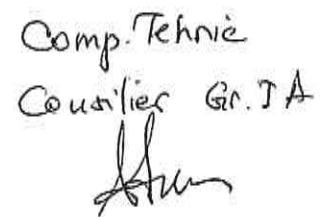 Comp. Tehnic
Consilier Gr. I A